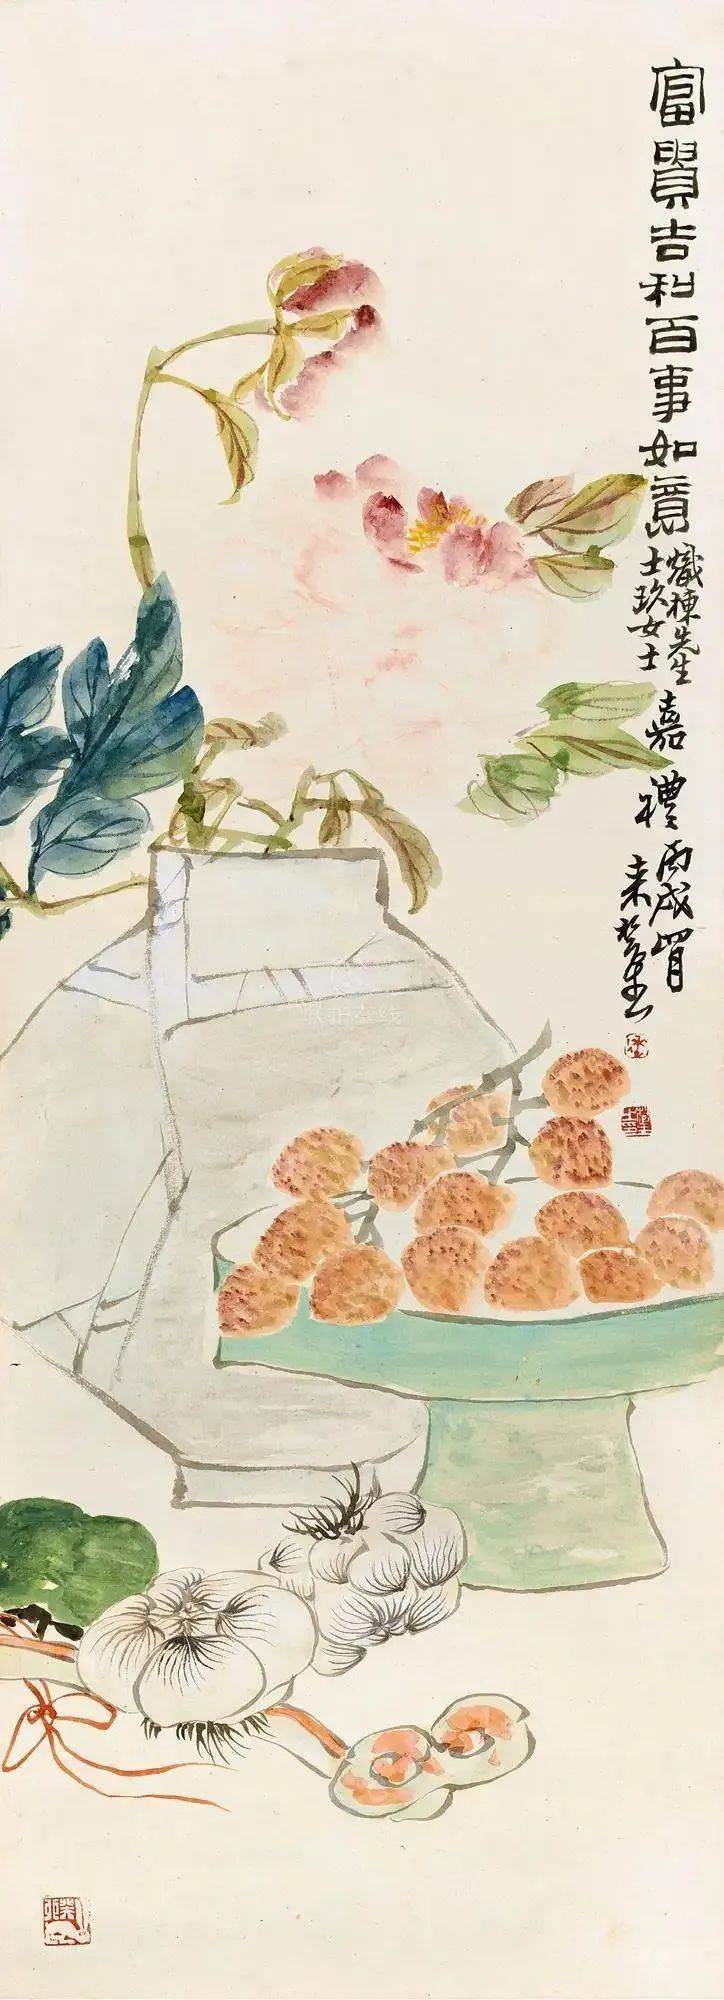 富貴吉利百事如意
熾棟先生
士玖女士
嘉禮丙戌四月
来楚生